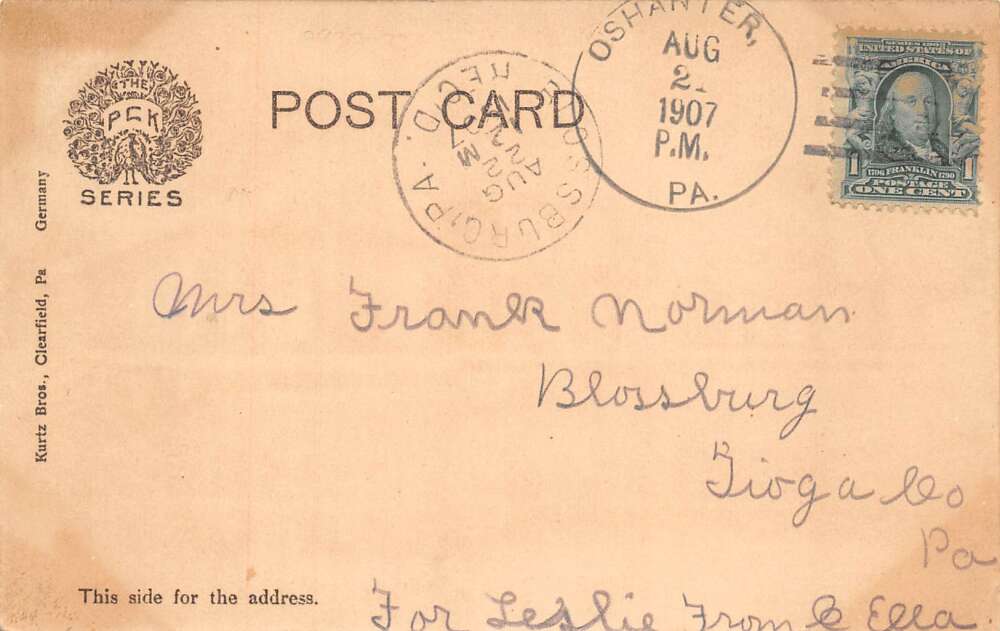 THE
PCK
SERIES
POST CARD
BLOSSBURG, PA.
REC'D.
AUG
2
AM
OSHANTER,
AUG
1907
P.M.
PA.
SERIES 1902
UNITED STATES OF
AMERICA
1706 FRANKLIN 1790
1 1
POSTAGE
ONE CENT
Kurtz Bros., Clearfield, Pa Germany
Mrs Frank Norman
Blossburg
Tioga Co
Pa
This side for the address.
For Leslie From C Ella.